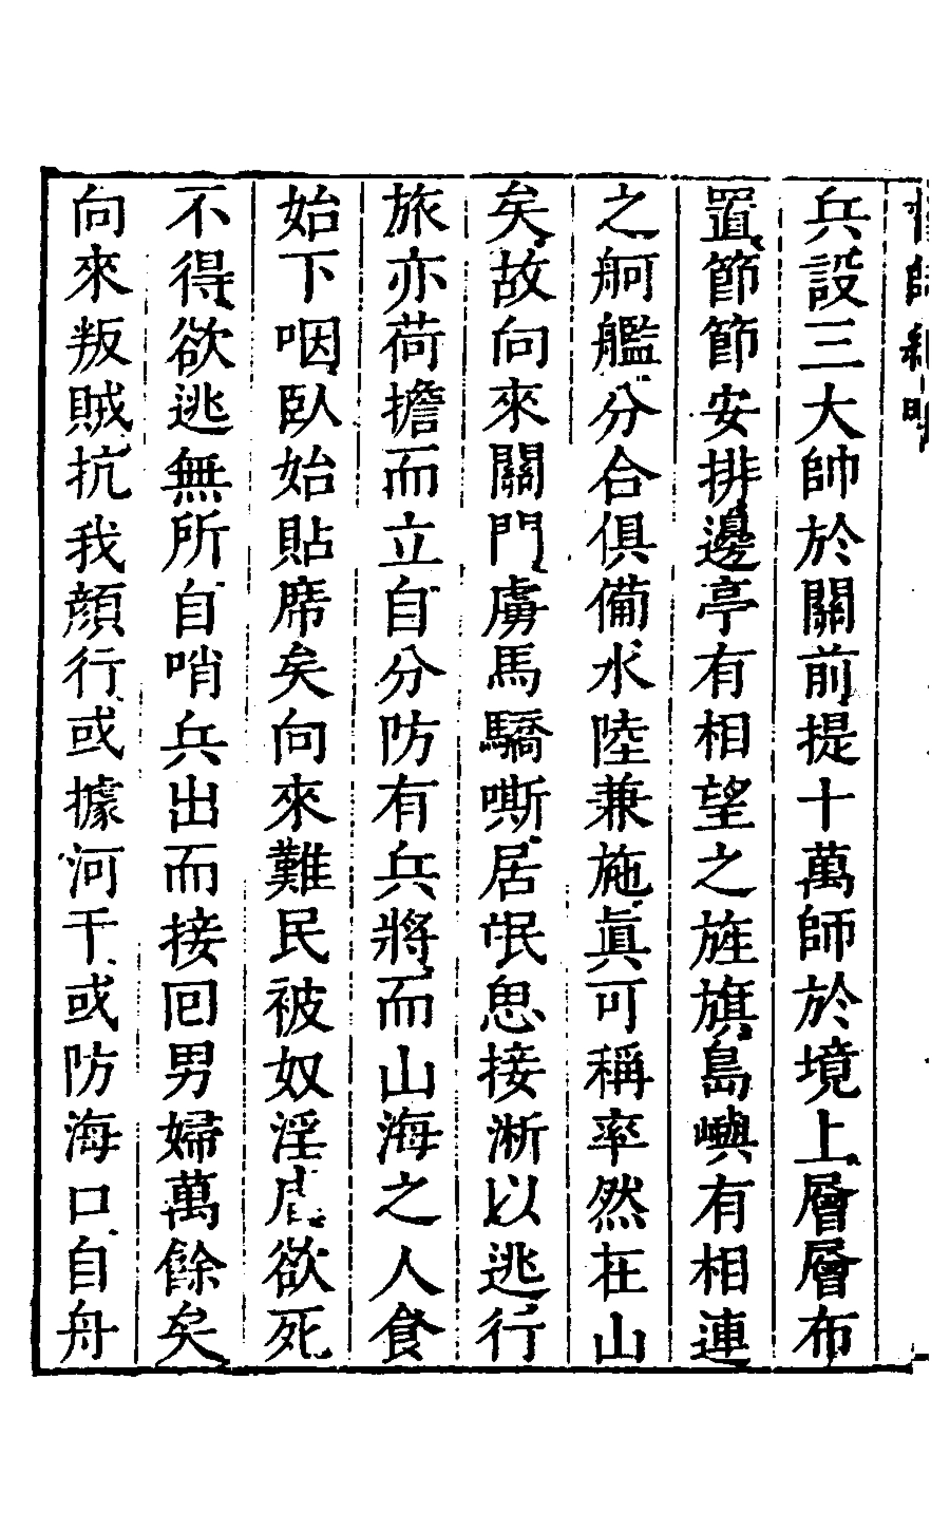 兵設三大帥於關前提十萬師於境上層層布
置節節安排邊亭有相望之旌旗島嶼有相連
之舸艦分合俱備水陸兼施眞可稱率然在山
矣故向來關門虜馬驕嘶居氓思接淅以逃行
旅亦荷擔而立自分防有兵將而山海之人食
始下咽臥始貼席矣向來難民被奴淫虐欲死
不得欲逃無所自哨兵出而接回男婦萬餘矣
向來叛賊抗我顏行或據河干或防海口自舟